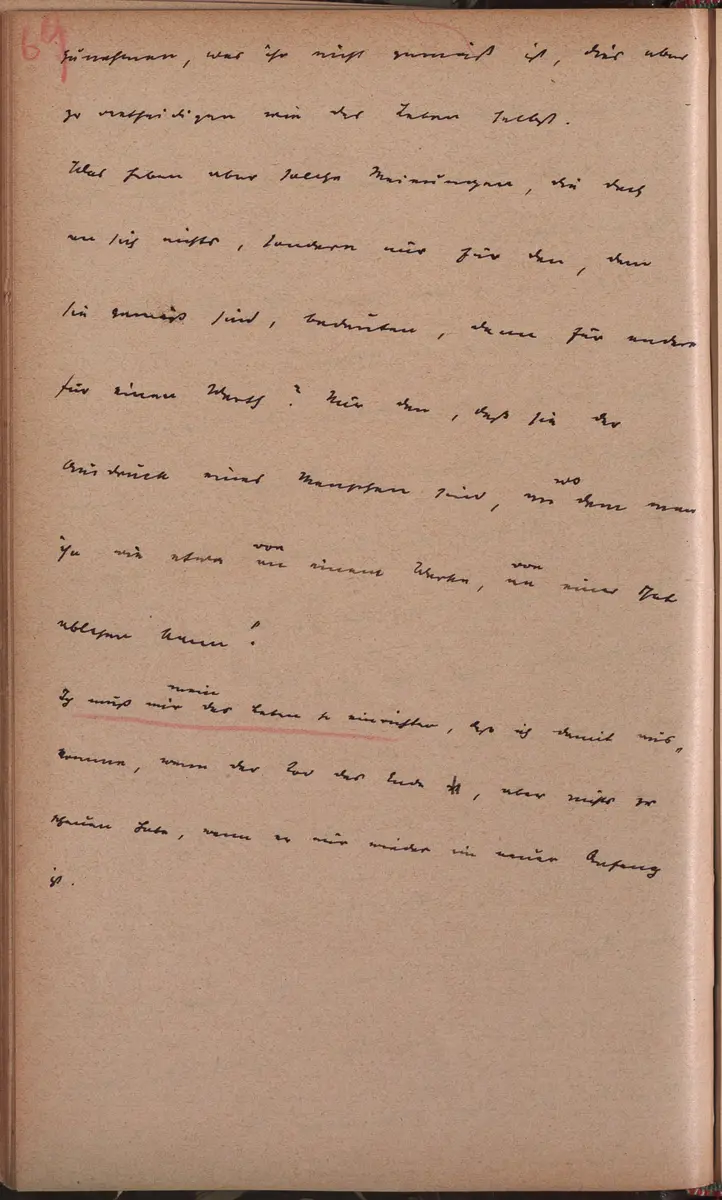 69
zunehmen, was ihr nicht gemäß ist, dies aber
zu vertheidigen wie das Leben selbst.
Was haben aber solche Meinungen, die doch
an sich nichts, sondern nur für den, dem
sie gemäß sind, bedeuten, denn für andere
für einen Werth? Nur den, daß sie der
Ausdruck eines Menschen sind, wo
an dem man
von von
ihn wie etwa an einem Werke, an einer That
ablesen kann!
mein
Ich muß mir das Leben so einrichten, daß ich damit aus„
komme, wenn der Tod das Ende ist, aber nichts zu
scheuen habe, wenn er nur wieder ein neuer Anfang
ist.